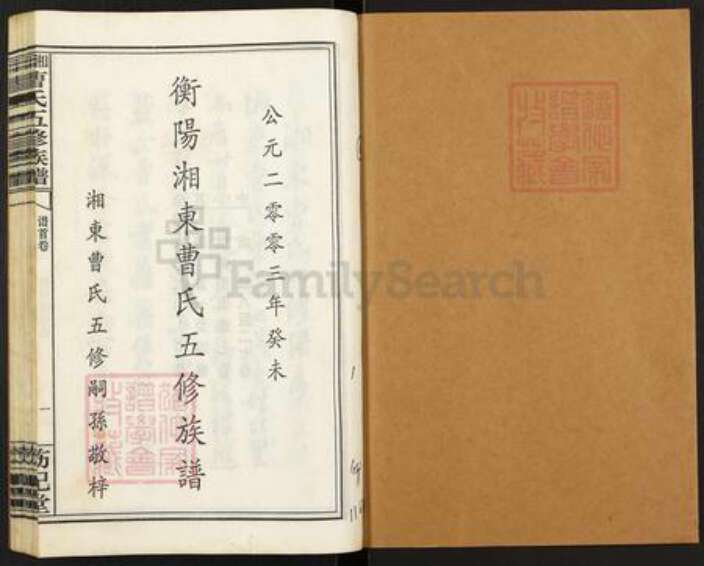 公元二零零三年癸未
衡陽湘東曹氏五修族譜
湘東曹氏五修嗣孫敬梓
曹氏五修族譜
谱首卷
一
FamilySearch